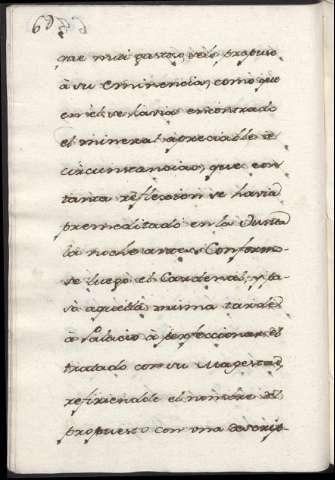 que mui gastoso, selo propuso
à su Eminencia, como que
en èl se havia encontrado
el mineral apreciable de
circunstancias, que con
tanta reflexion se havia
premeditado en la Junta
la noche antes. Conformo-
se luego el Cardenal, y pa-
sò aquella misma tarde
à Palacio à perfeccionar el
tratado con su Magestad,
refiriendole el nombre del
propuesto con una descrip-